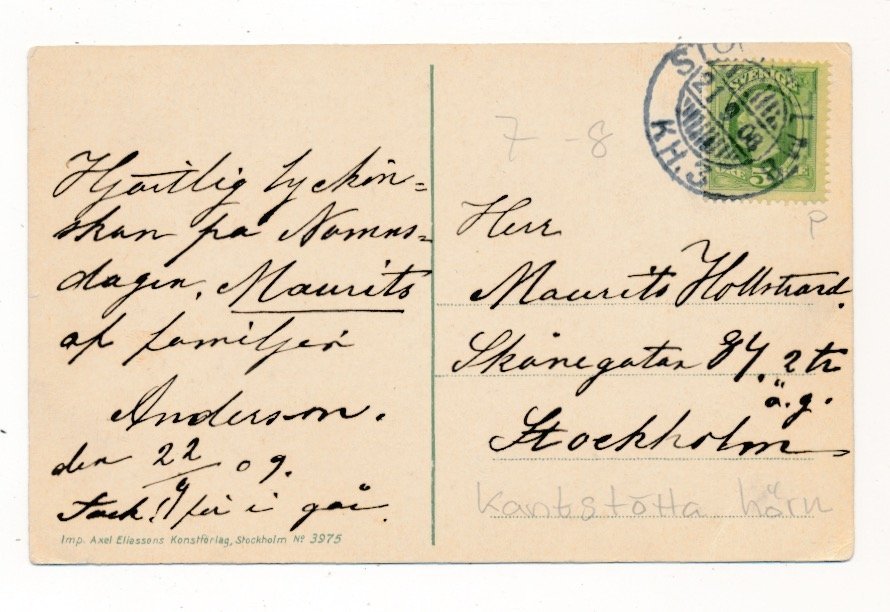 Hjärtlig lyckön=
skan på Namns=
dagen. Maurits
af familjen
Anderson.
den 22/9 09.
Tack! för i går.
Imp. Axel Eliassons Konstförlag, Stockholm No 3975
7 -8
K.H.3
21 9 09
SVERIGE
5
P
Herr
Maurits Hollstrand.
Skånegatan 84, 2 tr
ö.g.
Stockholm
Kantstötta hörn